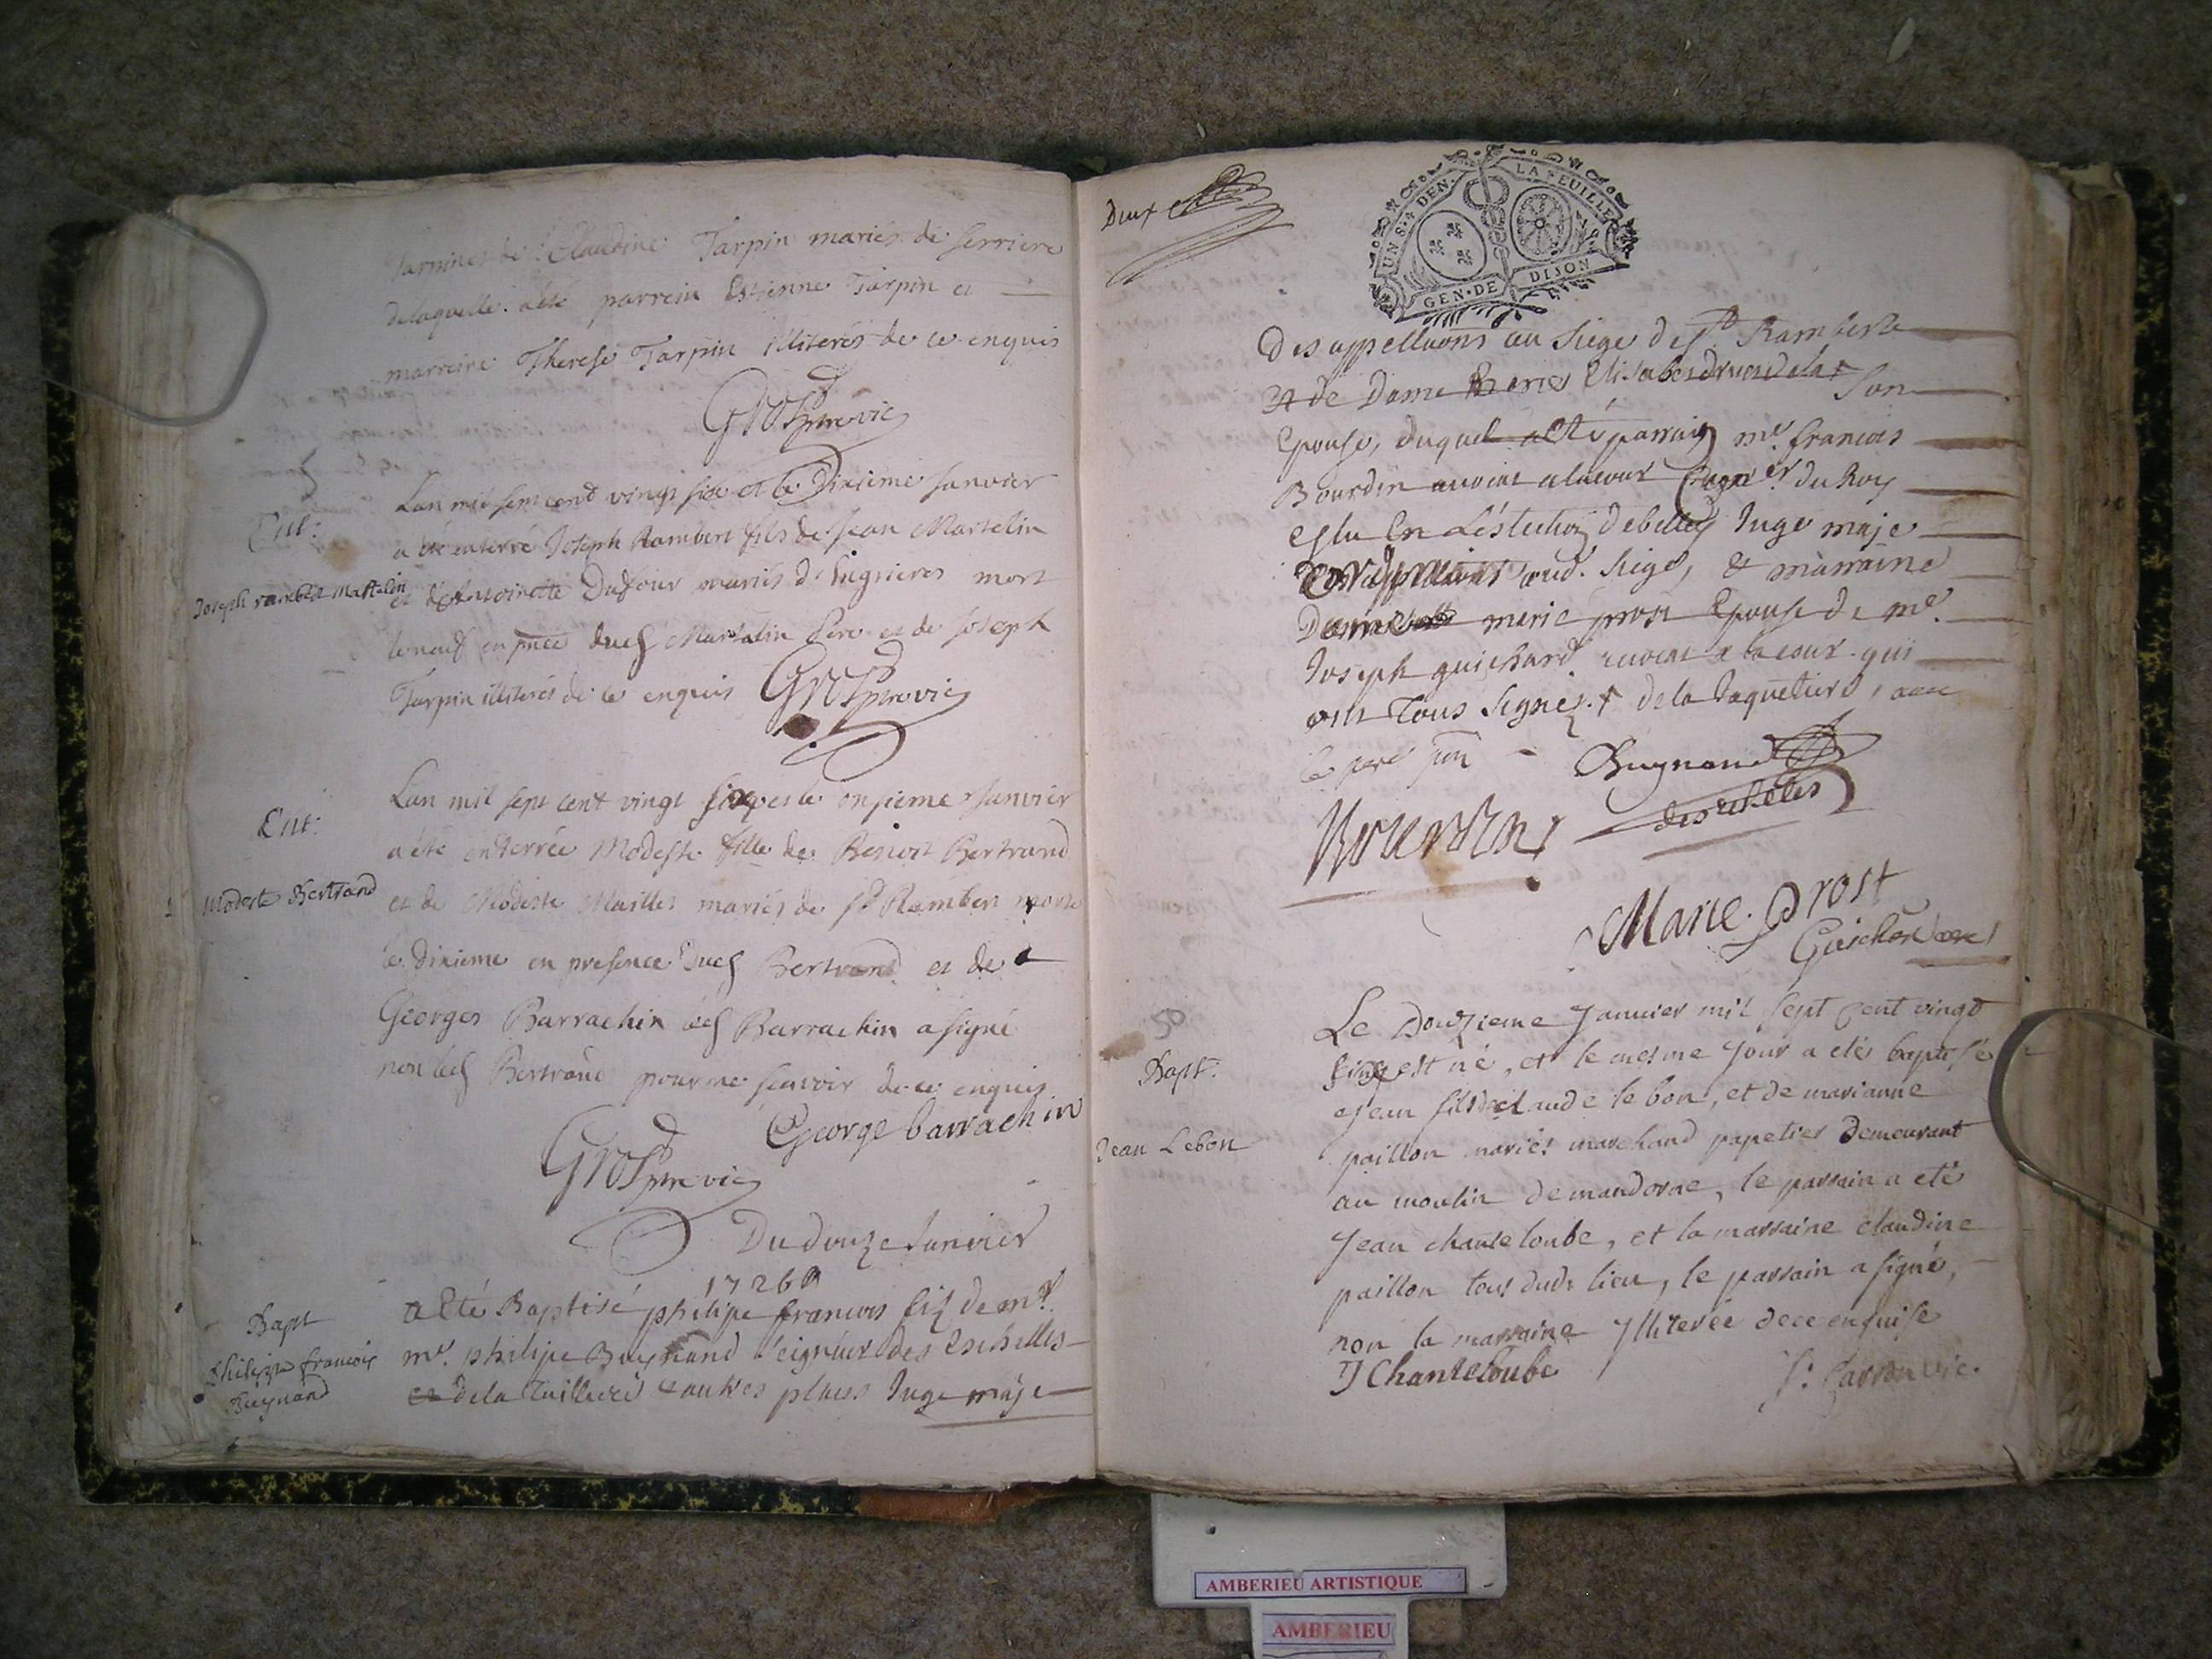 Claudine Tarpin mariés de serriere
delaquelle a été parrein Estienne Tarpin et
marreine Therese Tarpin illiterés de ce enquis
Gros previc
Ent:
Joseph rambert Mastelin
Lan mil sept cent vingt six et le Dixieme Janvier
a été enterré Joseph Rambert fils de Jean Martelin
et d'Antoinette Dufour mariés de mort
le neuf en pnce dud Martelin Pere et de Joseph
Tarpin illiterés de ce enquis Gros previc
Ent:
Modeste Bertrand
Lan mil sept cent vingt six et le onsieme Janvier
a été enterrée Modeste fille de Benoit Bertrand
et de Modeste Mailles mariés de st Rambert morte
le dixieme en presence dud Bertrand et de
Georges Barrachin led Barrachin a signé
non led Bertrand pour ne scavoir de ce enquis
George barrachin
Gros previc
Du douze Janvier
1726
Bapt
philippe francois
Buynand
a Eté Baptisé philipe francois fils de mr
me. philipe Buynand seigneur des Eschelles
et de la Tuilliere & autres places Juge maje
Deux
UN S. 4 DEN. LA FEUILLE
GEN. DE DIJON
Des appellaons au siege de st. Rambert
et de Dame Elisabet son
Epouse, duquel a Eté parrain me. francois
Bourdin avocat a la cour du Roy
Eslu En L'eslection de belley Juge maje
aud. siege, & marraine
Dame marie prost Epouse de me.
Joseph guichard avocat a la cour qui
ont Tous signés. de la Jaquetiere, avec
le pere
Buynand
des eschelles
Bourdin
Marie Prost
Guichard
50
Bapt.
Jean Lebon
Le Douzieme Janvier mil sept cent vingt
six est né, et le mesme Jour a etés baptisé
Jean fils de claude le bon, et de marianne
paillon mariés marchand papetier demeurant
au moulin de mandorne, le parrain a eté
Jean chanteloube, et la marraine claudine
paillon tous dudt lieu, le parrain a signé,
non la marraine Illiterée de ce enquise
J Chanteloube
AMBERIEU ARTISTIQUE
AMBERIEU